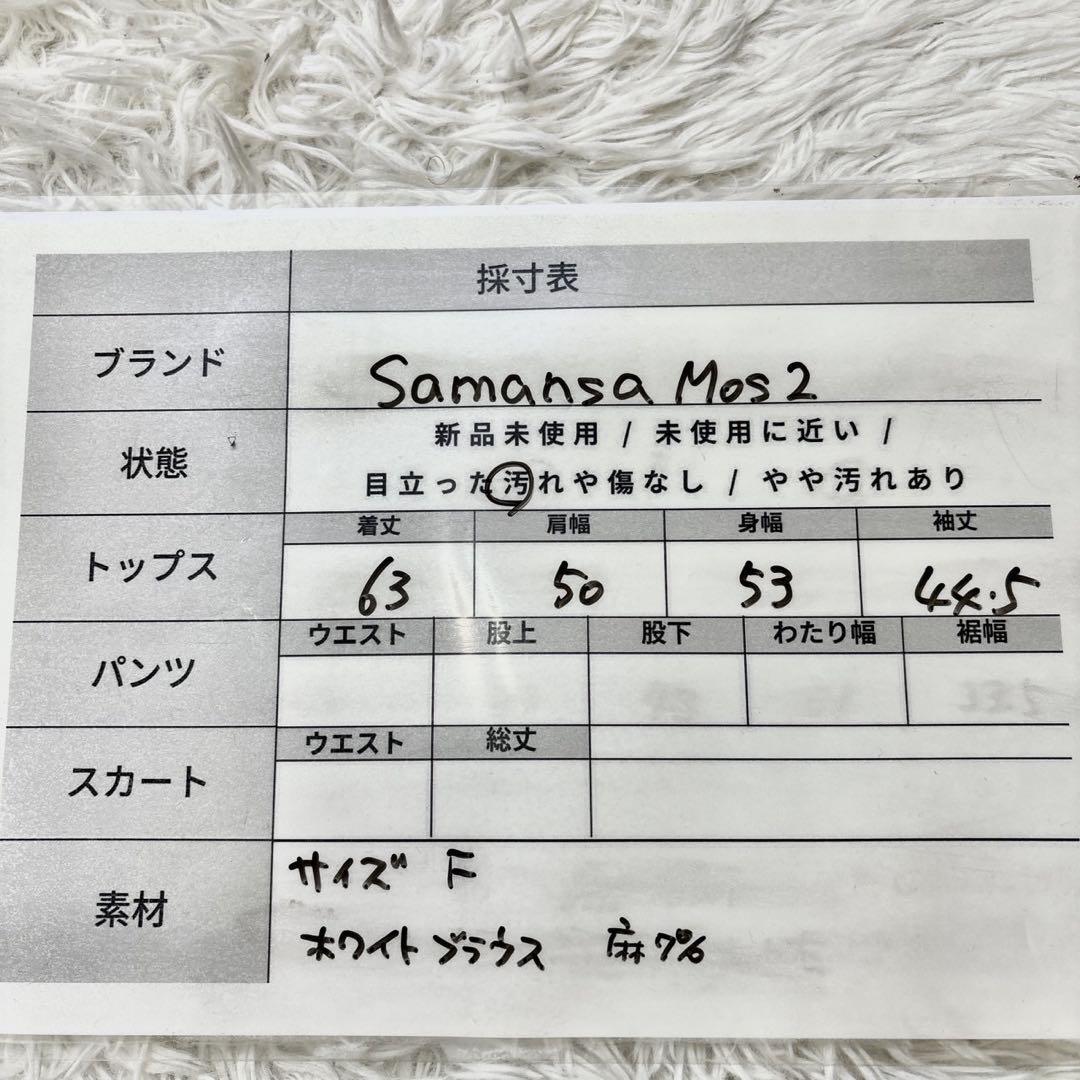 採寸表
ブランド
Samansa Mos2
状態
新品未使用 / 未使用に近い /
目立った汚れや傷なし / やや汚れあり
トップス
着丈 肩幅 身幅 袖丈
63 50 53 44.5
パンツ
ウエスト 股上 股下 わたり幅 裾幅
スカート
ウエスト 総丈
素材
サイズ F
ホワイトブラウス 麻7%